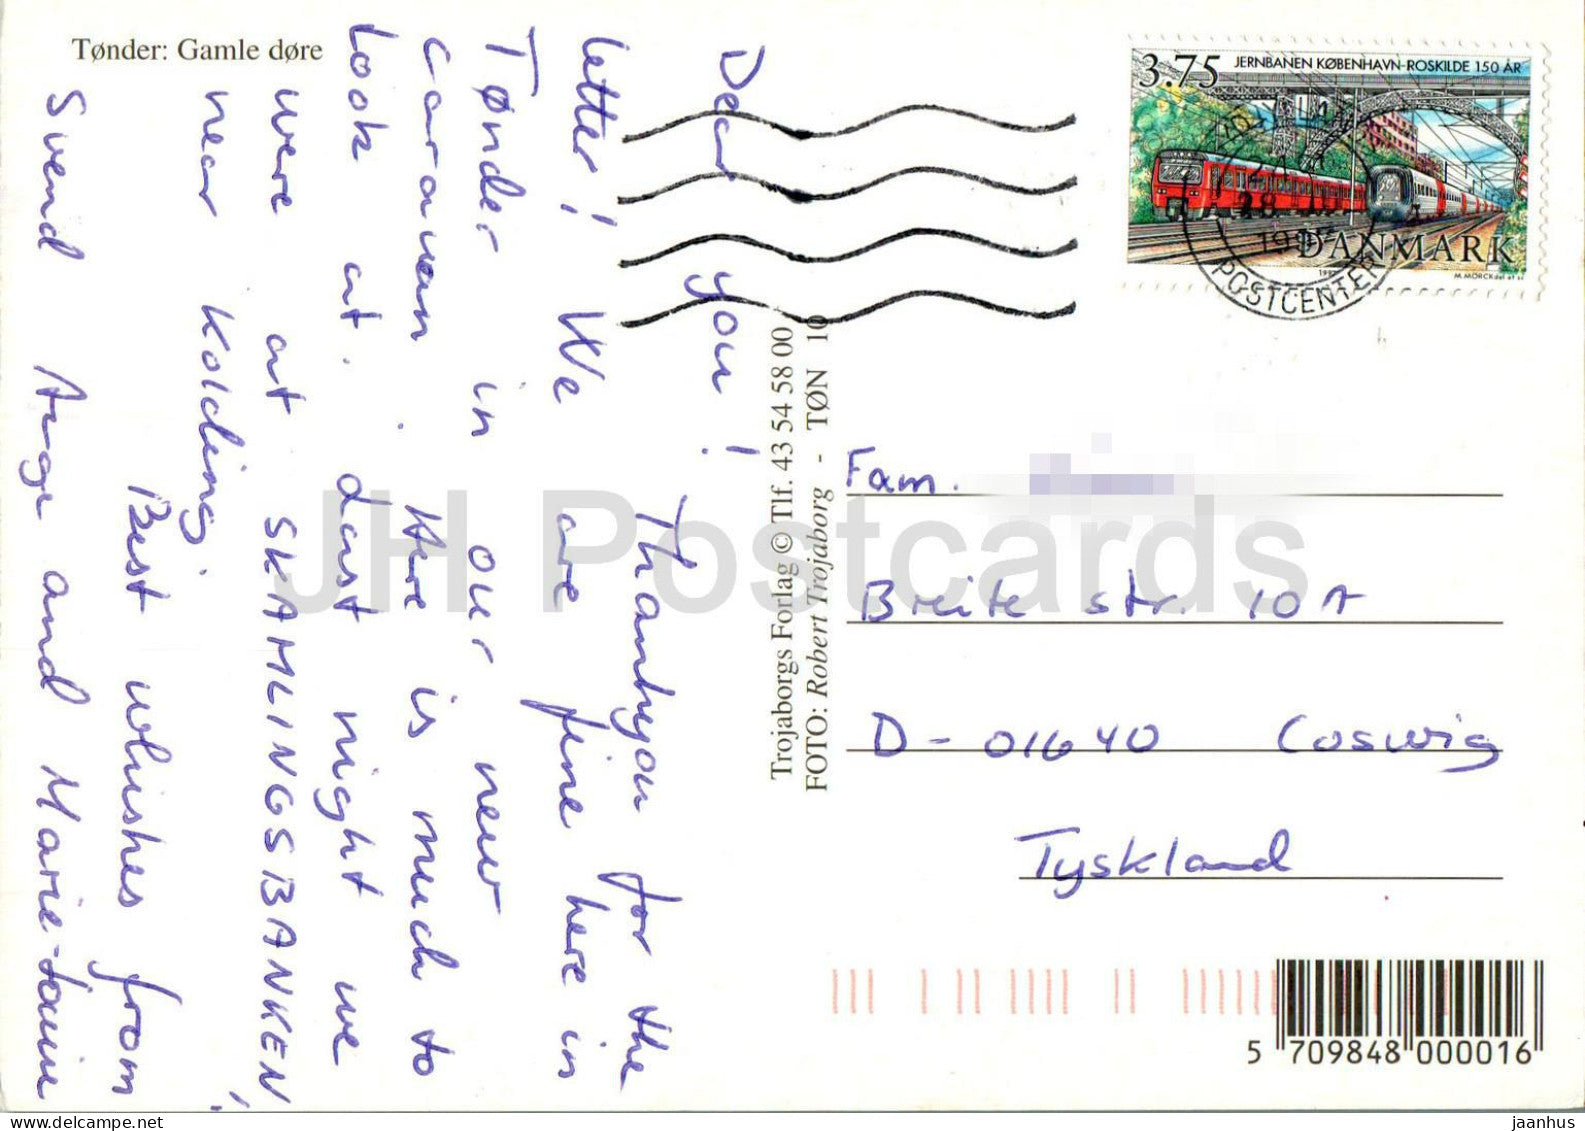 Tønder: Gamle døre
Dear you!
Thankyou for the
letter! We are fine here in
Tønder in our new
caravan. Here is much to
look at. Last night we
were at SKAMLINGSBANKEN
near Kolding!
Best whishes from
Svend Aage and Marie-Louise
Trojaborgs Forlag © Tlf. 43 54 58 00
FOTO: Robert Trojaborg - TØN 10
3.75 JERNBANEN KØBENHAVN-ROSKILDE 150 ÅR
DANMARK
1997
M. MÖRCK del et sc
POSTCENTER
Fam.
Breite str. 10A
D-01640 Coswig
Tyskland
5 709848 000016
JH Postcards
delcampe.net
jaanhus